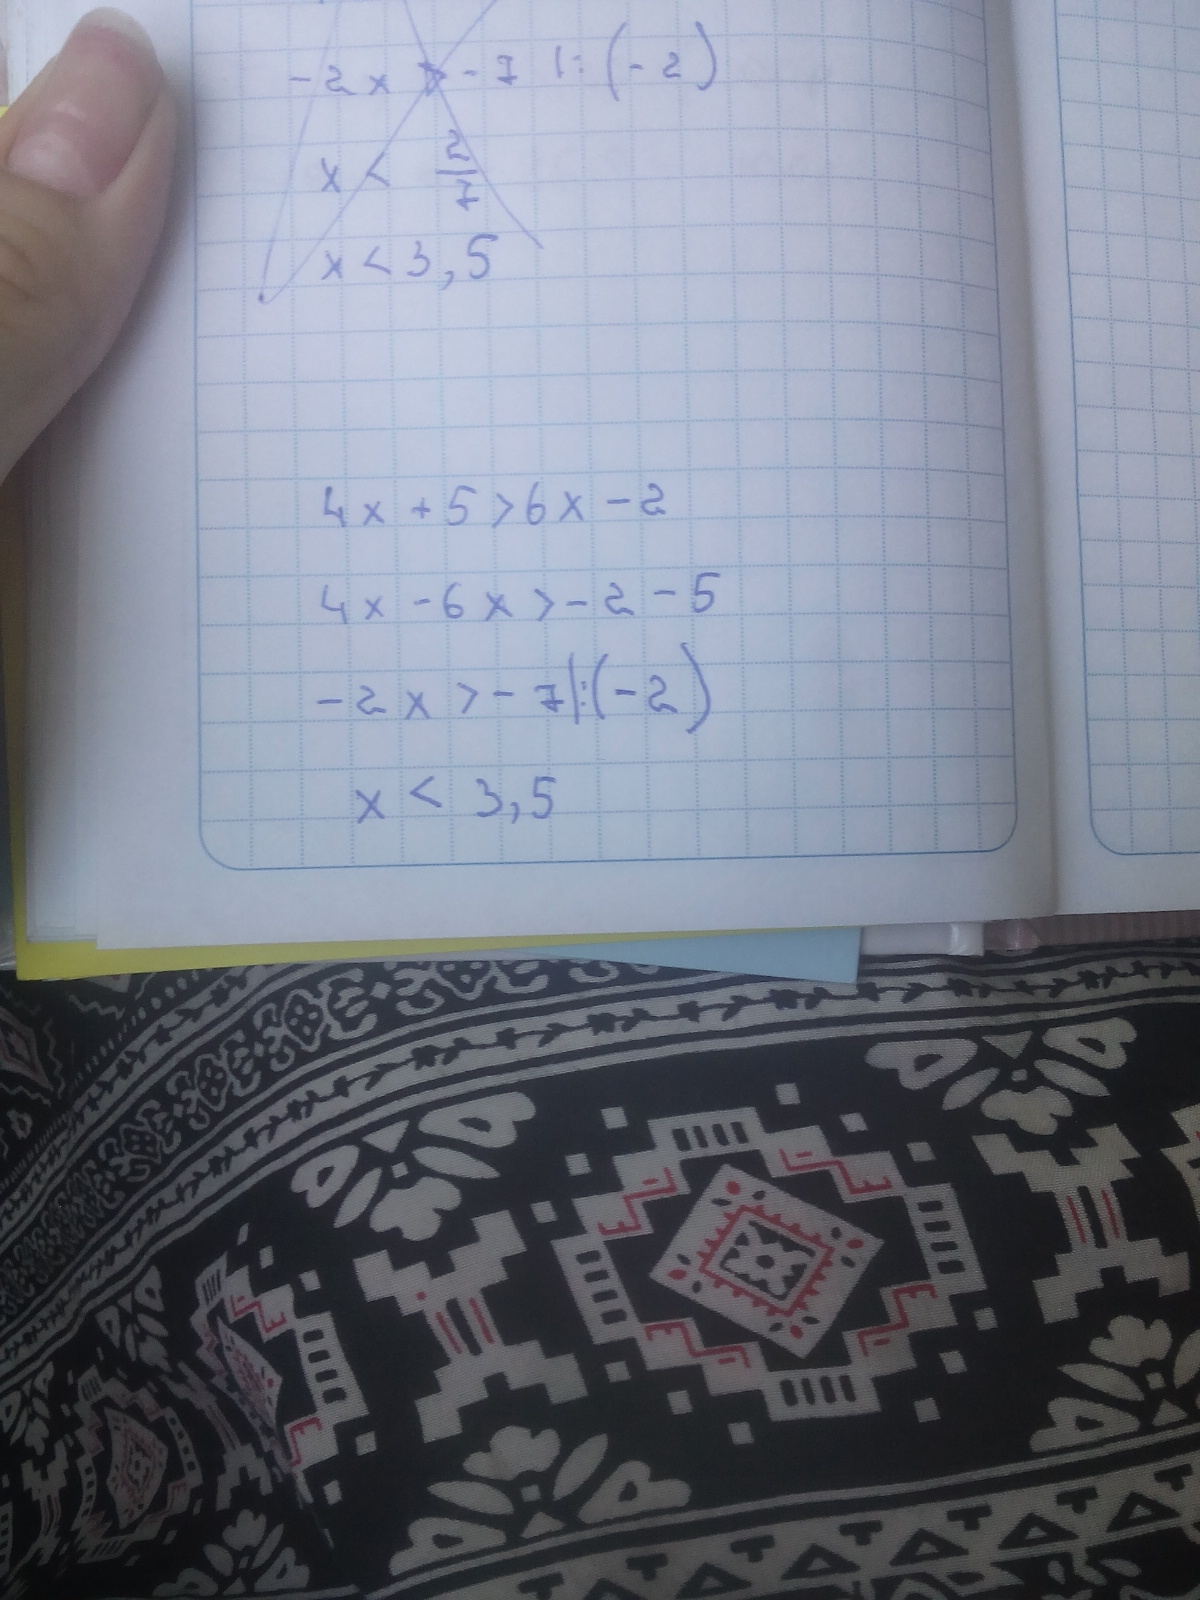 -2x > -7 |:(-2)
x < 2/7
x < 3,5
4x + 5 > 6x - 2
4x - 6x > -2 - 5
-2x > -7 |:(-2)
x < 3,5